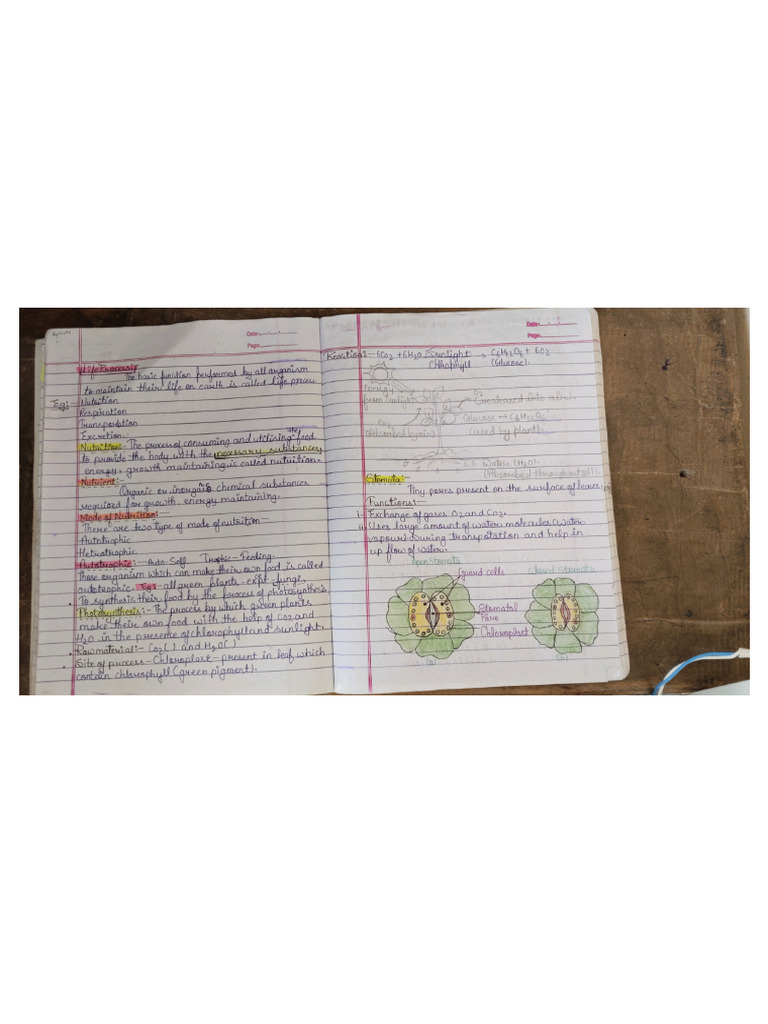 Date:
Page:
Life Process:-
The basic function performed by all organism
to maintain their life on earth is called life process
Eg:
Nutrition
Respiration
Transportation
Excretion.
Nutrition:- The process of consuming and utilising the food
to provide the body with the necessary substances
energy, growth maintaining is called nutrition.
Nutrient:-
Organic or inorganic chemical substances
required for growth, energy maintaining.
Mode of Nutrition:-
There are two type of mode of nutrition
Autotrophic
Hetrotrophic
Autotrophic:- Auto-Self Trophic- Feeding.
Those organism which can make their own food is called
autotrophic. Eg:- all green plants - fungi,
To synthesis their food by the process of photosythesis
Photosynthesis:- The process by which green plants
make their own food with the help of Co2 and
H2O in the presence of chlorophyll and sunlight.
Rawmaterial:- Co2( ) and H2O( )
Site of process - Chloroplast - present in leaf which
contain chlorophyll (green pigment).
Date:
Page:
Reaction:- 6Co2 + 6H2O Sunlight → C6H12O6 + 6O2
Chlrophyll (Glucose).
Energy
from sunlight
O2
(released into air).
Glucose → C6H12O6
(used by plant).
CO2
Water (H2O)
(Absorbed through soil).
Stomata:-
Tiny pores present on the surface of leaves
Functions:-
i. Exchange of gases O2 and Co2.
ii. Uses large amount of water molecules (water
vapour) during transpotation and help in
up flow of water.
Open Stomata
Guard cells
Closed Stomata
Stomatal
Pore
Chloroplast
(a)
(b)